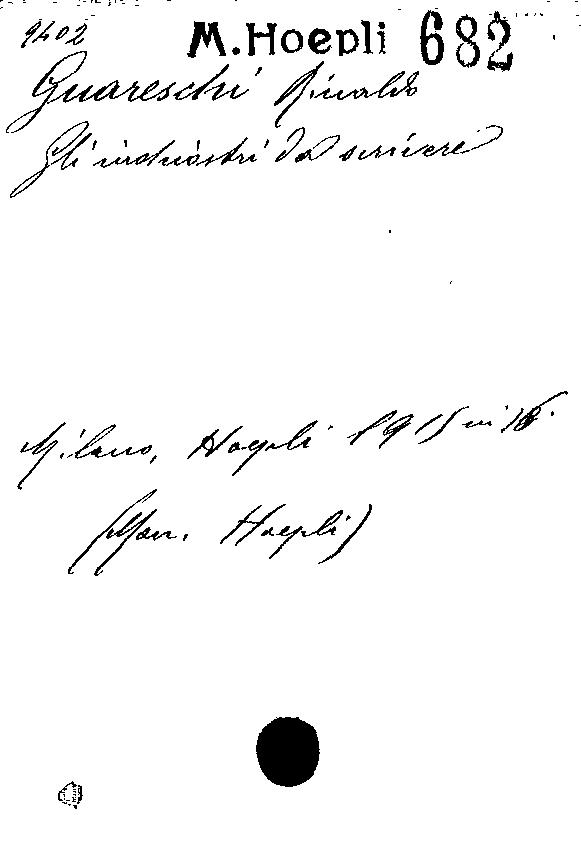 9402 M. Hoepli 682
Guareschi Rinaldo
Gli inchiostri da scrivere
Milano, Hoepli 1915 in 16.
(Man. Hoepli)